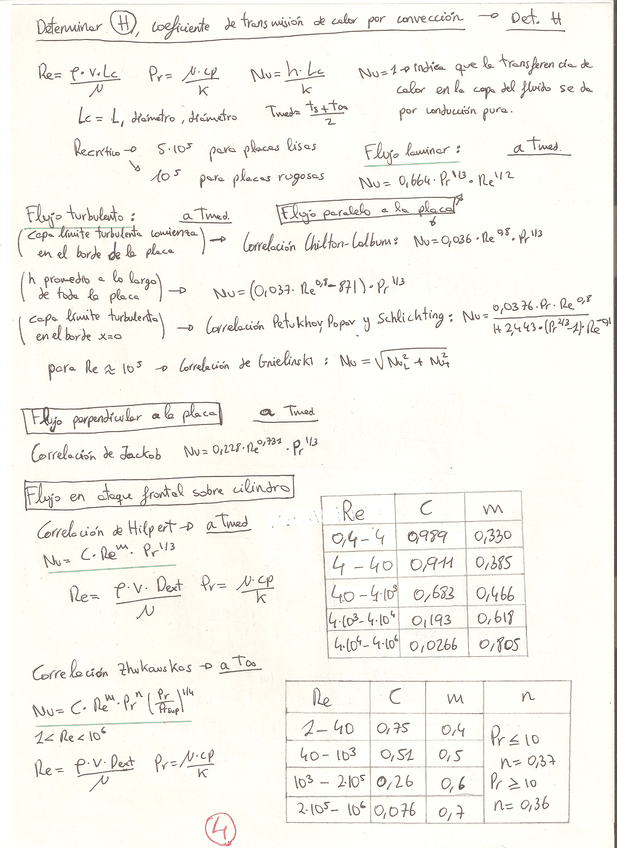 Determinar (H), coeficiente de transmisión de calor por convección → Det. H
Re = ρ·v·Lc/μ Pr = μ·cp/K Nu = h·Lc/K Nu=1 → indica que la transferencia de
calor en la capa del fluido se da
por conducción pura.
Lc = L, diámetro, diámetro Tmed = (ts+t∞)/2
Recrítico → 5·10⁵ para placas lisas
↘ 10⁵ para placas rugosas
Flujo laminar: a Tmed.
Nu = 0,664·Pr^1/3·Re^1/2
Flujo turbulento: a Tmed. Flujo paralelo a la placa
(capa límite turbulenta comienza
en el borde de la placa) → Correlación Chilton-Colburn: Nu = 0,036·Re^0,8·Pr^1/3
(h promedio a lo largo
de toda la placa) → Nu = (0,037·Re^0,8 - 871)·Pr^1/3
(capa límite turbulenta
en el borde x=0) → Correlación Petukhov, Popov y Schlichting: Nu = 0,0376·Pr·Re^0,8/(1+2,443·(Pr^2/3-1)·Re^-0,1)
para Re ≈ 10⁵ → Correlación de Gnielinski: Nu = √(Nu_L² + Nu_T²)
Flujo perpendicular a la placa a Tmed
Correlación de Jackob Nu = 0,228·Re^0,731·Pr^1/3
Flujo en ataque frontal sobre cilindro
Correlación de Hilpert → a Tmed
Nu = C·Re^m·Pr^1/3
Re = ρ·v·Dext/μ Pr = μ·cp/K
Re C m
0,4-4 0,989 0,330
4-40 0,911 0,385
40-4·10³ 0,683 0,466
4·10³-4·10⁴ 0,193 0,618
4·10⁴-4·10⁶ 0,0266 0,805
Correlación Zhukauskas → a T∞
Nu = C·Re^m·Pr^n (Pr/Prsup)^1/4
1<Re<10⁶
Re = ρ·v·Dext/μ Pr = μ·cp/K
Re C m n
1-40 0,75 0,4
40-10³ 0,51 0,5
10³-2·10⁵ 0,26 0,6
2·10⁵-10⁶ 0,076 0,7
Pr ≤ 10
n = 0,37
Pr ≥ 10
n = 0,36
4